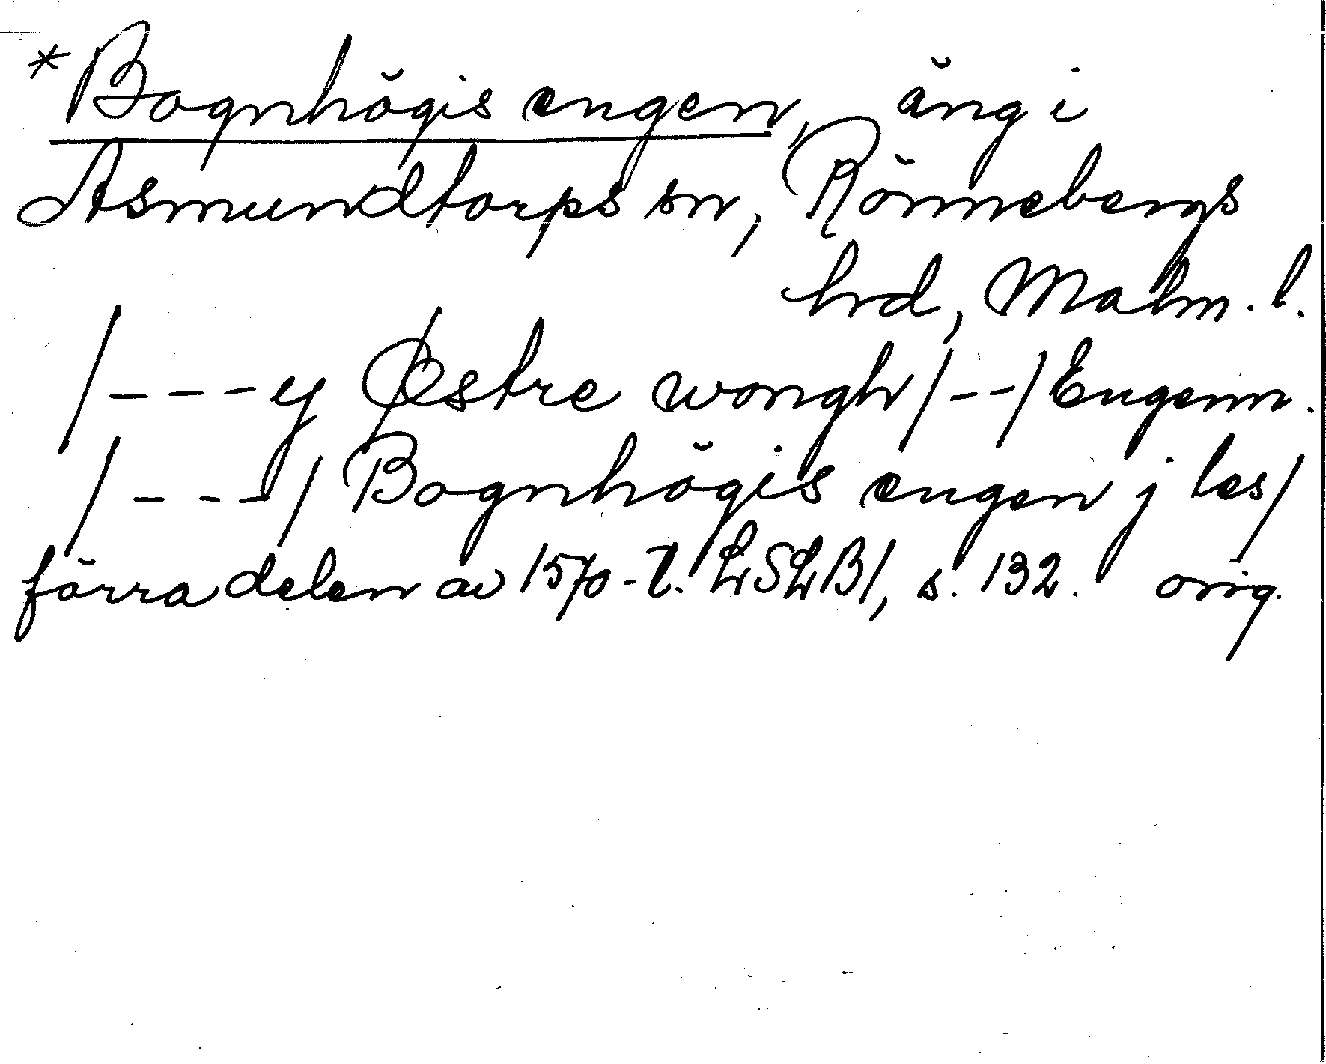 *Bognhögis engen, äng i
Asmundtorps sn, Rönnebergs
hrd, Malm. l.
/---y Østre wongh/--/Engenn.
/---/ Bognhögis engen j les/
förra delen av 1570-t. LSLB1, s. 132. orig.